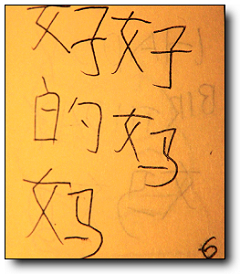 好好
的妈
妈
6